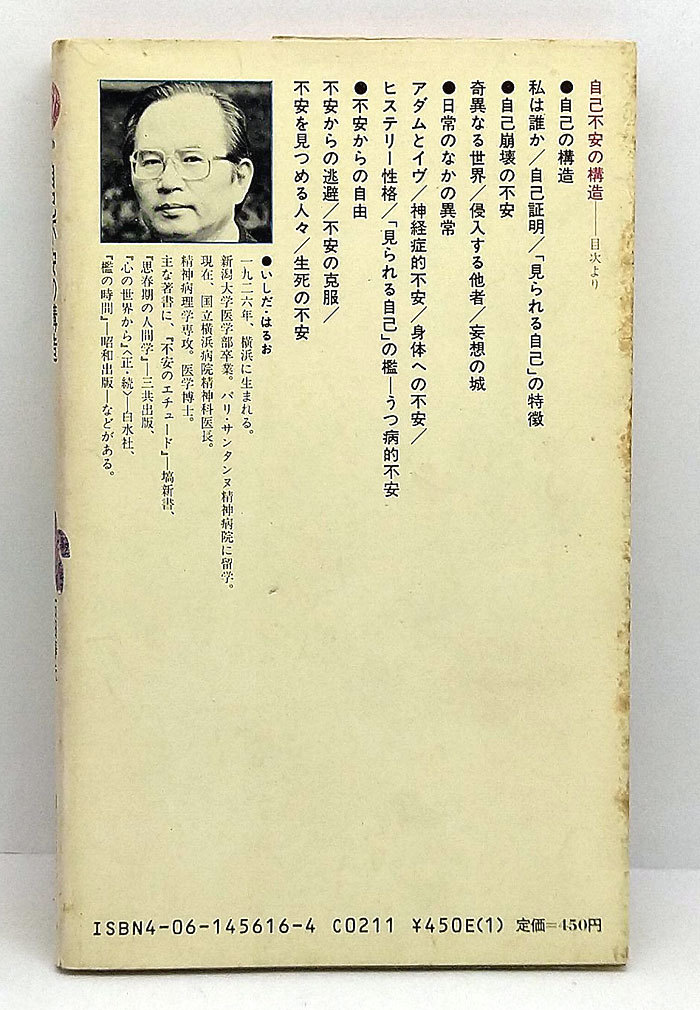 自己不安の構造──目次より
●自己の構造
私は誰か/自己証明/「見られる自己」の特徴
●自己崩壊の不安
奇異なる世界/侵入する他者/妄想の城
●日常のなかの異常
アダムとイヴ/神経症的不安/身体への不安/
ヒステリー性格/「見られる自己」の檻─うつ病的不安
●不安からの自由
不安からの逃避/不安の克服/
不安を見つめる人々/生死の不安
●いしだ・はるお
一九二六年、横浜に生まれる。
新潟大学医学部卒業。パリ・サンタンヌ精神病院に留学。
現在、国立横浜病院精神科医長。
精神病理学専攻。医学博士。
主な著書に、『不安のエチュード』─塙新書、
『思春期の人間学』─三共出版、
『心の世界から』〈正・続〉─白水社、
『檻の時間』─昭和出版─などがある。
ISBN4-06-145616-4 C0211 ¥450E(1) 定価=450円